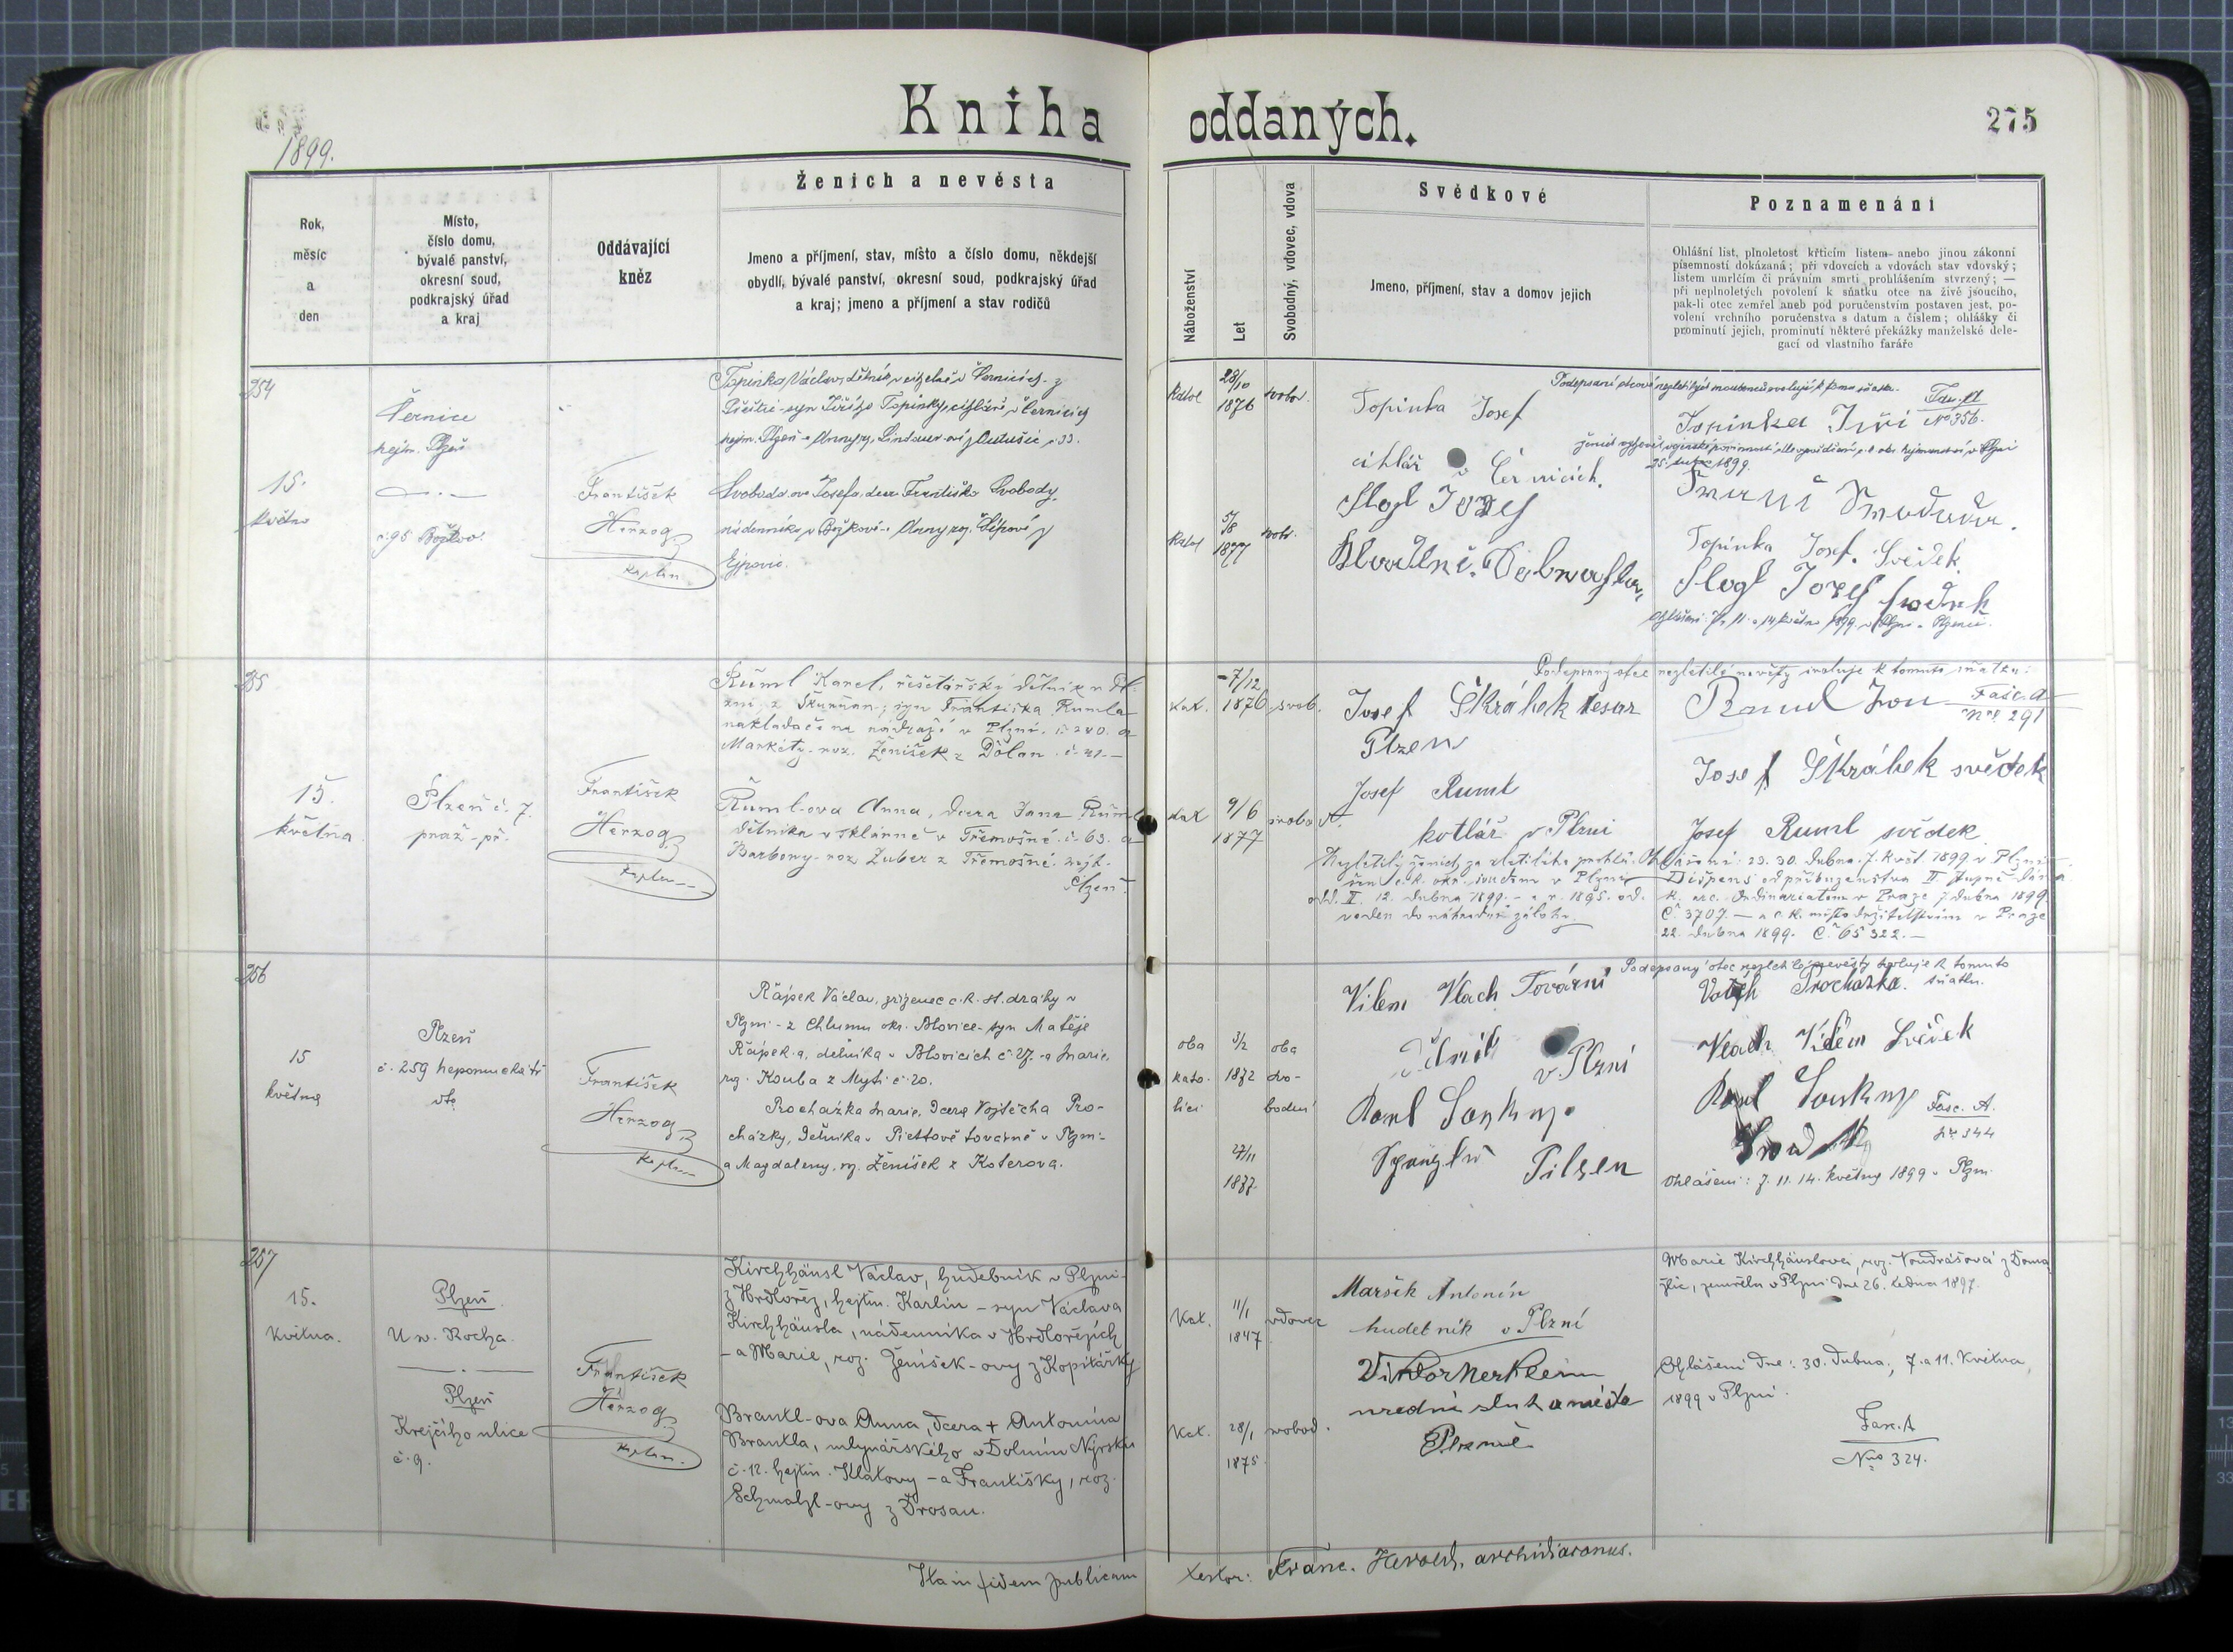 Kniha oddaných.
275
1899.
Rok,
měsíc
a
den
Místo,
číslo domu,
bývalé panství,
okresní soud,
podkrajský úřad
a kraj
Oddávající
kněz
Ženich a nevěsta
Jmeno a příjmení, stav, místo a číslo domu, někdejší
obydlí, bývalé panství, okresní soud, podkrajský úřad
a kraj; jmeno a příjmení a stav rodičů
Náboženství
Let
Svobodný, vdovec, vdova
Svědkové
Jmeno, příjmení, stav a domov jejich
Poznamenání
Ohlášní list, plnoletost křticím listem anebo jinou zákonní
písemností dokázaná; při vdovcích a vdovách stav vdovský;
listem umrlčím či právním smrti prohlášením stvrzený; —
při neplnoletých povolení k sňatku otce na živě jsoucího,
pak-li otec zemřel aneb pod poručenstvím postaven jest, po-
volení vrchního poručenstva s datum a číslem; ohlášky či
prominutí jejich, prominutí některé překážky manželské dele-
gací od vlastního faráře
254
15.
května
Černice
hejtm. Plzeň
č. 95 Božkov
František
Herzog
kaplan
Topinka Václav, dělník v cihelně v Černicích z
syn Jiřího Topinky, cihláře v Černicích
hejtm. Plzeň a Anny roz.
Svoboda-ova Josefa, dcera Františka Svobody,
nádenníka v Božkově a Anny roz.
Ejpovic.
Katol
28/10
1876
svobod.
Katol
5/8
1877
svob.
Topinka Josef
cihlář v Černicích.
Slogl Josef
Topinka Jiří
Fasc. A
No 356.
25. 1899.
Topinka Josef. Svědek.
Slogl Josef svědek
Ohlášení: 7., 11. a 14 května 1899 v Plzni a
255
15.
května
Plzeň č. 7.
praž. př.
František
Herzog
kaplan
Ruml Karel, řešetářský dělník v Pl-
zni z Škvrňan; syn Františka Rumla
nakladače na nádraží v Plzni. č. 240. a
Markéty roz. Ženíšek z Dolan č. 41.—
Ruml-ova Anna, dcera Jana Ruml
dělníka v sklárně v Třemošné. č. 63. a
Barbory roz Zuber z Třemošné. hejt.
Plzeň.
kat.
7/12
1876
svob.
kat
9/6
1877
svobod.
Josef Škrábek tesar
Plzen
Josef Ruml
kotlář v Plzni
Nezletilý ženich za zletilého prohlá-
šen c. k. okr. soudem v Plzni
odd. II. 12. dubna 1899.
veden do náhradní zálohy.
Podepsaný otec nezletilé nevěsty svoluje k tomuto sňatku:
Fasc. A
Nro 291
Josef Škrábek svědek
Josef Ruml svědek
Ohlášení: 23. 30. dubna. 7. květ. 1899 v Plzni.
Dispens od příbuzenstva II stupně dána
k. arc. Ordinariatem v Praze 7 dubna 1899
Č. 3707. — a c. k. místodržitelstvím v Praze
22. dubna 1899. Č. 65322.—
256
15
května
Plzeň
č. 259
František
Herzog
kaplan
Řápek Václav, zřízenec c. k. st. dráhy v
Plzni - z Chlumu okr. Blovice - syn Matěje
Řápek-a, dělníka v Blovicích č 27. a Marie
roz. Kouba z Mýti č. 20.
Procházka Marie, dcera Vojtěcha Pro-
cházky, dělníka v Piettově továrně v Plzni
a Magdaleny, roz. Ženíšek z Koterova.
oba
kato-
líci
3/2
1872
27/11
1877
oba
svo-
bodní
Vilem Vlach Tovární
dělník v Plzni
Karl Soukup
Spängler Pilsen
Podepsaný otec nezletilé nevěsty svoluje k tomuto
sňatku.
Vojtěh Procházka.
Vlach Vilém Svědek
Karl Soukup
Fasc. A.
Nro 344
Ohlášení: 7. 11. 14. května 1899 v Plzni.
257
15.
Května.
Plzeň
U sv. Rocha.
Plzeň
Krejčího ulice
č. 9.
František
Herzog
kaplan.
Kirchhäusl Václav, hudebník v Plzni
z Hrdlořez, hejtm. Karlín - syn Václava
Kirchhäusla, nádenníka v Hrdlořezích
- a Marie, roz. Ženíšek-ovy z Kopitářky
Brantl-ova Anna, dcera + Antonína
Brantla, mlynářského v Dolním Nýrsku
č. 12. hejtm. Klatovy - a Františky, roz.
Schmalzl-ovy z Drosau.
Kat.
11/1
1847
vdovec
Kat.
28/1
1875
svobod.
Maršik Antonín
hudebník v Plzni
Viktor Merklein
uredni sluha města
Plzně
Marie Kirchhäuslová, roz. Vondrášová z Doma-
žlic, zemřela v Plzni dne 26. ledna 1897.
Ohlášeni dne: 30. dubna, 7. a 11. Května,
1899 v Plzni.
Fasc. A
Nro 324.
Ita in fidem publicam testor: Franc. Herold, archidiaconus.